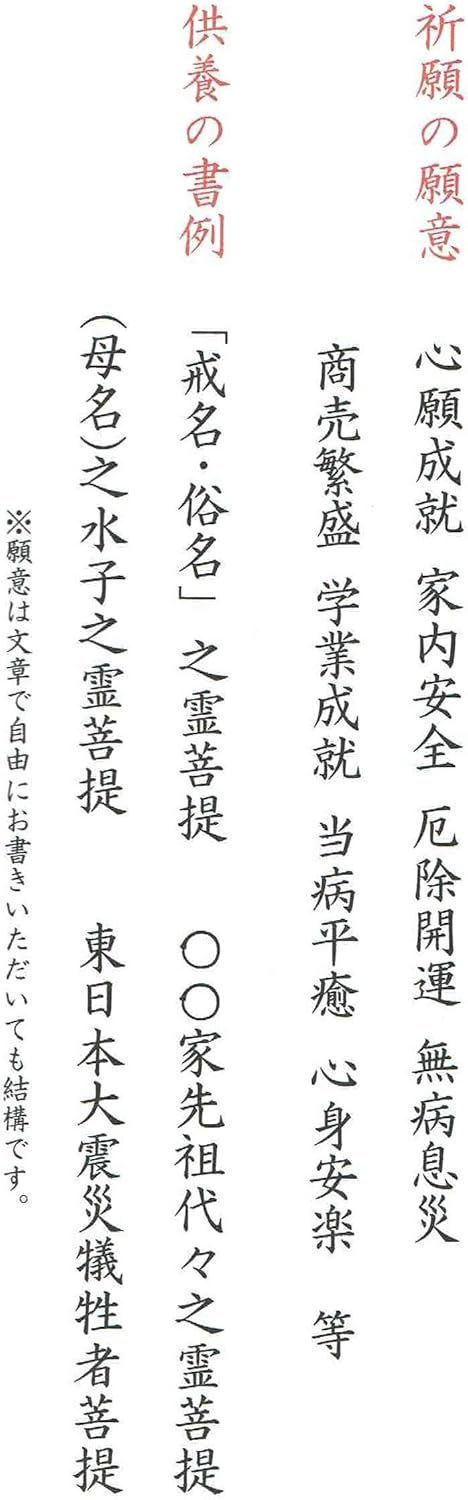 祈願の願意　心願成就　家内安全　厄除開運　無病息災
商売繁盛　学業成就　当病平癒　心身安楽　等
供養の書例　「戒名・俗名」　之霊菩提　〇〇家先祖代々之霊菩提
（母名）之水子之霊菩提　東日本大震災犠牲者菩提
※願意は文章で自由にお書きいただいても結構です。